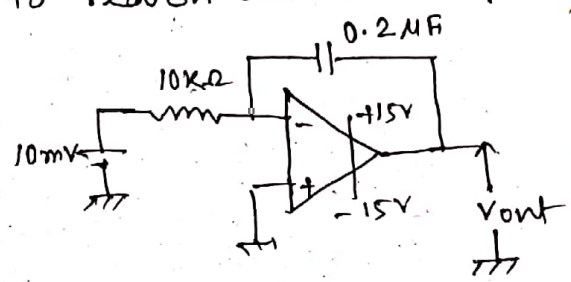 to
0.2 MF
10KΩ
10mV
-
+15V
+
-15V
Vout